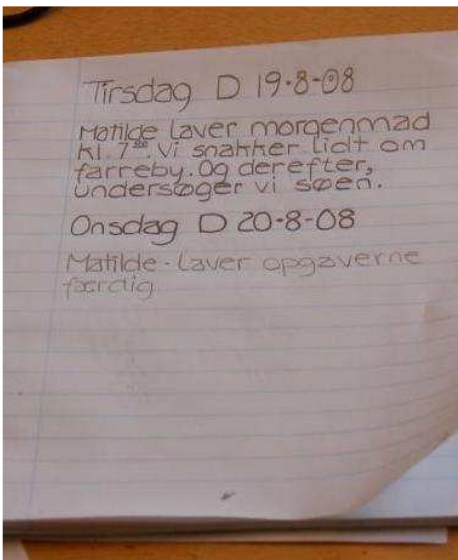 Tirsdag D 19-8-08
Matilde laver morgenmad
kl. 7⁰⁰. Vi snakker lidt om
farreby. Og derefter,
undersøger vi søen.
Onsdag D 20-8-08
Matilde - laver opgaverne
færdig